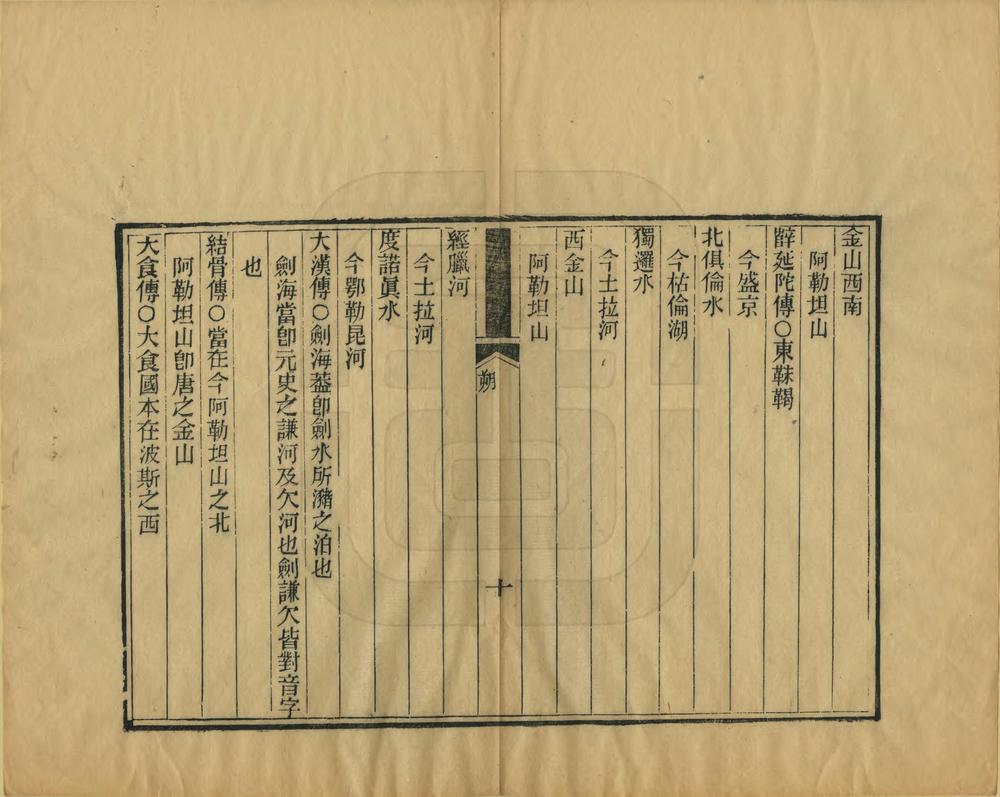 金山西南
阿勒坦山
薛延陀傳○東靺鞨
今盛京
北俱倫水
今枯倫湖
獨邏水
今土拉河
西金山
阿勒坦山
朔
十
經臘河
今土拉河
度諾眞水
今鄂勒昆河
大漢傳○劍海葢卽劍水所瀦之泊也
劍海當卽元史之謙河及欠河也劍謙欠皆對音字
也
結骨傳○當在今阿勒坦山之北
阿勒坦山卽唐之金山
大食傳○大食國本在波斯之西